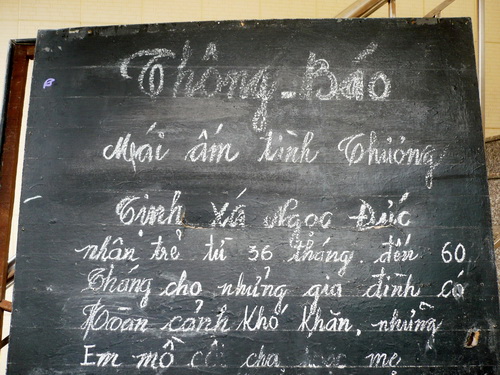 Thông-Báo
Mái ấm tình Thương
Tịnh Xá Ngọc Đức
nhận trẻ từ 36 tháng. đến 60
Tháng cho những gia đình có
Hoàn cảnh Khó Khăn, những
Em mồ côi cha hoặc mẹ